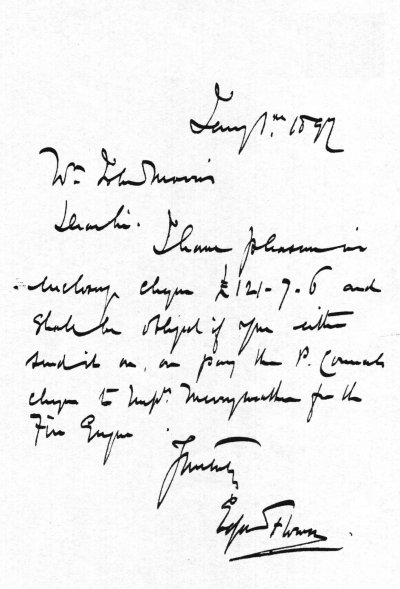 Jany 1st 1897
Wm John Morris
Dear Sir.
I have pleasure in
enclosing cheque £121-7-6 and
shall be obliged if you either
send it on, or pay the P. Councils
cheque to Messrs. Merryweather for the
Fire Engine.
Edgar Flower.